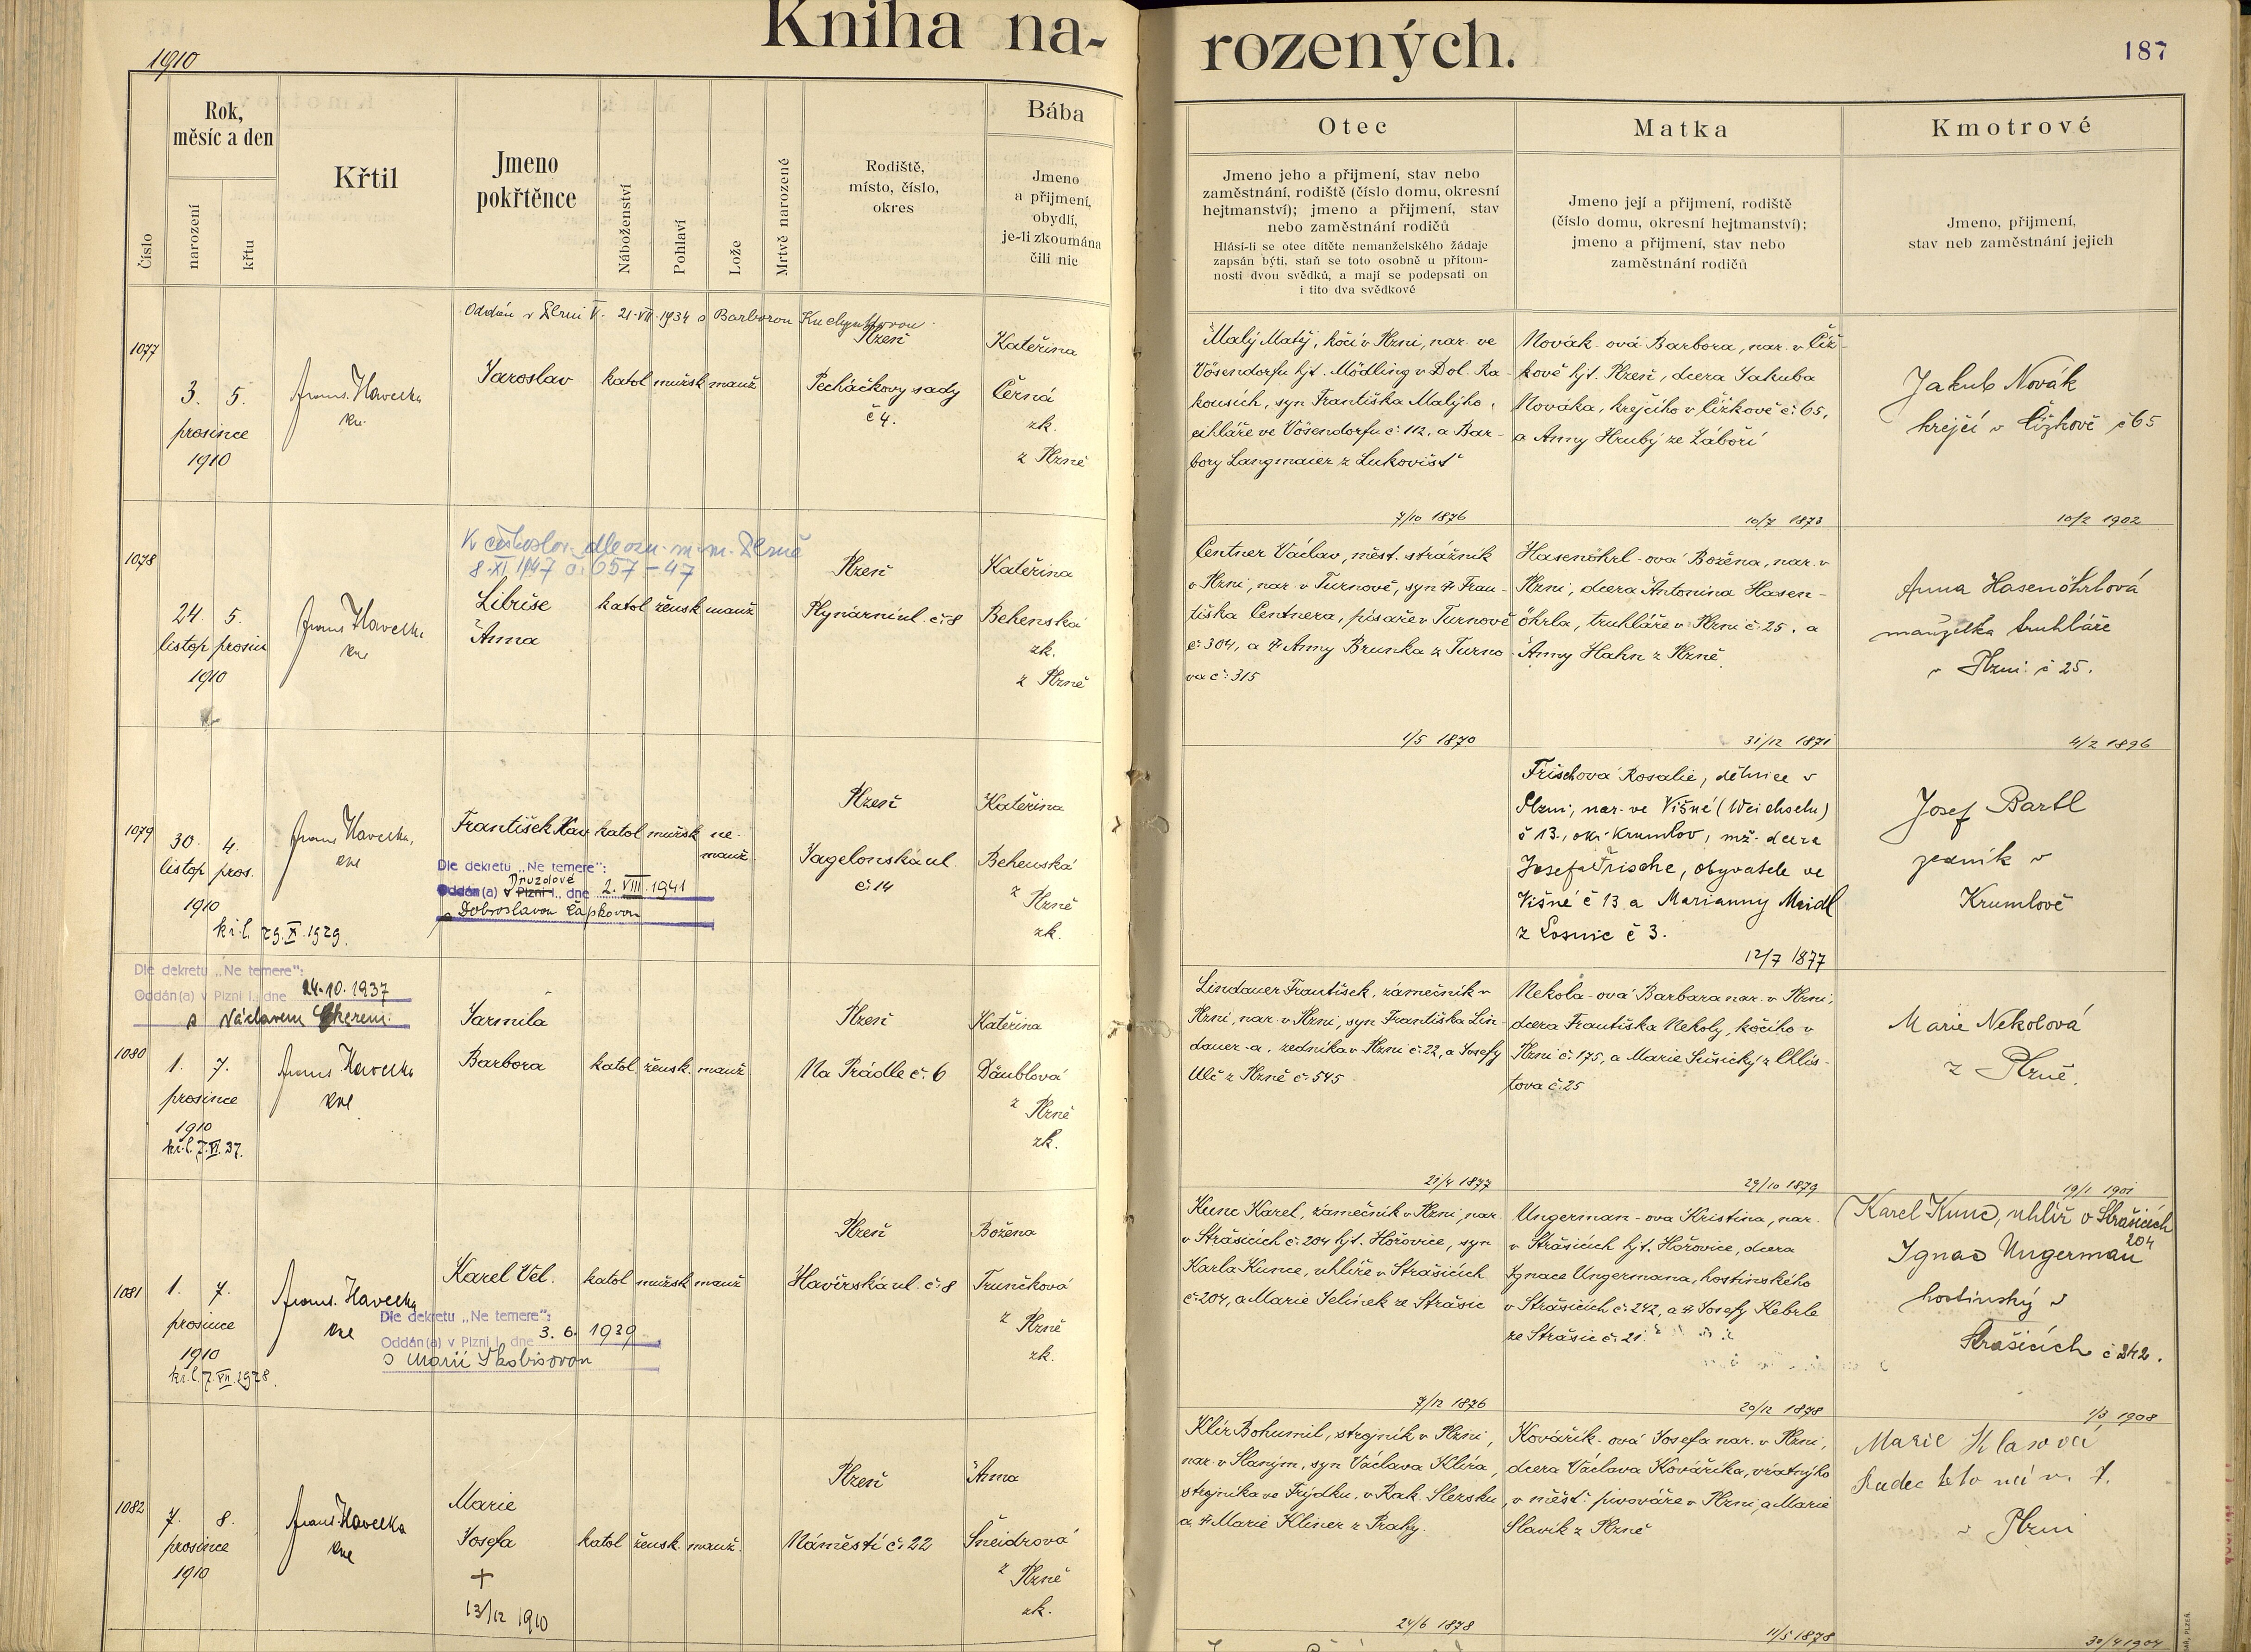 1910
Kniha na-
rozených.
187
Rok,
měsíc a den
Číslo
narození
křtu
Křtil
Jmeno
pokřtěnce
Náboženství
Pohlaví
Lože
Mrtvě narozené
Rodiště,
místo, číslo,
okres
Bába
Jmeno
a přijmení,
obydlí,
je-li zkoumána
čili nic
Otec
Jmeno jeho a přijmení, stav nebo
zaměstnání, rodiště (číslo domu, okresní
hejtmanství); jmeno a přijmení, stav
nebo zaměstnání rodičů
Hlásí-li se otec dítěte nemanželského žádaje
zapsán býti, staň se toto osobně u přítom-
nosti dvou svědků, a mají se podepsati on
i tito dva svědkové
Matka
Jmeno její a přijmení, rodiště
(číslo domu, okresní hejtmanství);
jmeno a přijmení, stav nebo
zaměstnání rodičů
Kmotrové
Jmeno, přijmení,
stav neb zaměstnání jejich
Oddán v Plzni V. 21.VII.1934 s Barborou
1077
3. 5.
prosince
1910
Frant. Havelka
Jaroslav
katol mužsk manž
Plzeň
Pecháčkovy sady
č 4.
Kateřina
Černá
zk.
z Plzně
Malý Matěj, kočí v Plzni, nar. ve
Vösendorfu hjt. Mödling v Dol. Ra-
kousích, syn Františka Malýho,
cihláře ve Vösendorfu č. 112, a Bar-
bory Langmaier z Lukovišt'
7/10 1876
Novák-ová Barbora, nar. v Číž-
kově hjt. Plzeň, dcera Jakuba
Nováka, krejčího v Čížkově č. 65,
a Anny Hrubý ze Záboří
10/7 1873
Jakub Novák
krejčí v Čížkově č 65
10/2 1902
K českoslov. dle ozn. m. m. Plzně
8.XI 1947 č. 657-47
1078
24. 5.
listop. prosin
1910
Frant. Havelka
Libuše
Anna
katol žensk manž
Plzeň
Plynární ul. č. 8
Kateřina
Behenská
zk.
z Plzně
Centner Václav, měst. strážník
v Plzni, nar. v Turnově, syn † Fran-
tiška Centnera, písaře v Turnově
č. 304, a † Anny Brunka z Turno-
va č. 315
1/5 1870
Hasenöhrl-ová Božena, nar. v
Plzni, dcera Antonína Hasen-
öhrla, truhláře v Plzni č. 25, a
Anny Hahn z Plzně
31/12 1871
Anna Hasenöhrlová
manželka truhláře
v Plzni č 25.
4/2 1896
1079
30. 4.
listop. pros.
1910
kř.l. 29.X.1929.
Frant. Havelka,
František Xav
katol mužsk ne-
manž.
Dle dekretu „Ne temere":
Oddán(a) v Plzni I., dne 2. VIII. 1941
Druzdové
s Dobroslavou Čapkovou
Plzeň
Jagelonská ul.
č 14
Kateřina
Behenská
z Plzně
zk.
Frischová Rosalie, dělnice v
Plzni, nar. ve Višné (Weichseln)
č 13., okr. Krumlov, mž. dcera
Josefa Frische, obyvatele ve
Višné č 13 a Marianny Meidl
z Losnic č 3.
12/7 1877
Josef Bartl
zedník v
Krumlově
Dle dekretu „Ne temere":
Oddán(a) v Plzni I., dne 24.10.1937
s Václavem
1080
1. 7.
prosince
1910
kř.l. 7.VI.37.
Frant. Havelka
Jarmila
Barbora
katol žensk. manž
Plzeň
Na Prádle č. 6
Kateřina
Däublová
z Plzně
zk.
Lindauer František, zámečník v
Plzni, nar. v Plzni, syn Františka Lin-
dauer-a, zedníka v Plzni č. 22, a Josefy
Ulč z Plzně č. 545
21/4 1877
Nekola-ová Barbara nar. v Plzni,
dcera Františka Nekoly, kočího v
Plzni č. 175, a Marie Sušický z Chlís-
tova č. 25
29/10 1879
Marie Nekolová
z Plzně.
19/1 1901
1081
1. 7.
prosince
1910
kř.l. 7.VII.1928.
Frant. Havelka
Karel Vel.
katol mužsk manž
Dle dekretu „Ne temere":
Oddán(a) v Plzni I., dne 3. 6. 1939
s Marií Škobisovou
Plzeň
Havířská ul. č. 8
Božena
Trunčková
z Plzně
zk.
Kunc Karel, zámečník v Plzni, nar.
v Strašicích č. 204 hjt. Hořovice, syn
Karla Kunce, uhlíře v Strašicích
č. 204, a Marie Jelínek ze Strašic
7/12 1876
Ungerman-ová Kristina, nar.
v Strašicích hjt. Hořovice, dcera
Ignace Ungermana, hostinského
v Strašicích č. 242, a † Josefy Kebrle
ze Strašic č. 21
20/12 1878
Karel Kunc, uhlíř v Strašicích
204
Ignac Ungerman
hostinský v
Strašicích č 242.
1/3 1908
1082
7. 8.
prosince
1910
Frant. Havelka
Marie
Josefa
+
13/12 1910
katol žensk. manž.
Plzeň
Náměstí č. 22
Anna
Šneidrová
z Plzně
zk.
Klír Bohumil, strojník v Plzni,
nar. v Slaným, syn Václava Klíra,
strojníka ve Frýdku, v Rak. Slezsku,
a † Marie Kliner z Prahy.
24/6 1878
Kovářík-ová Josefa nar. v Plzni,
dcera Václava Kováříka, vrátnýho
v měšť. pivováře v Plzni, a Marie
Slavík z Plzně
11/5 1878
Marie
v Plzni
30/4 1904